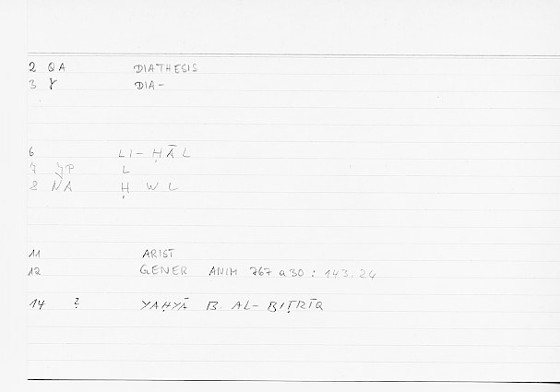 2 QA DIATHESIS
3 DIA-
6 LI-ḤĀL
7 L
8 Ḥ W L
11 ARIST
12 GENER ANIM 767 a30 : 143.24
14 ? YAḤYĀ B. AL-BIṬRĪQ